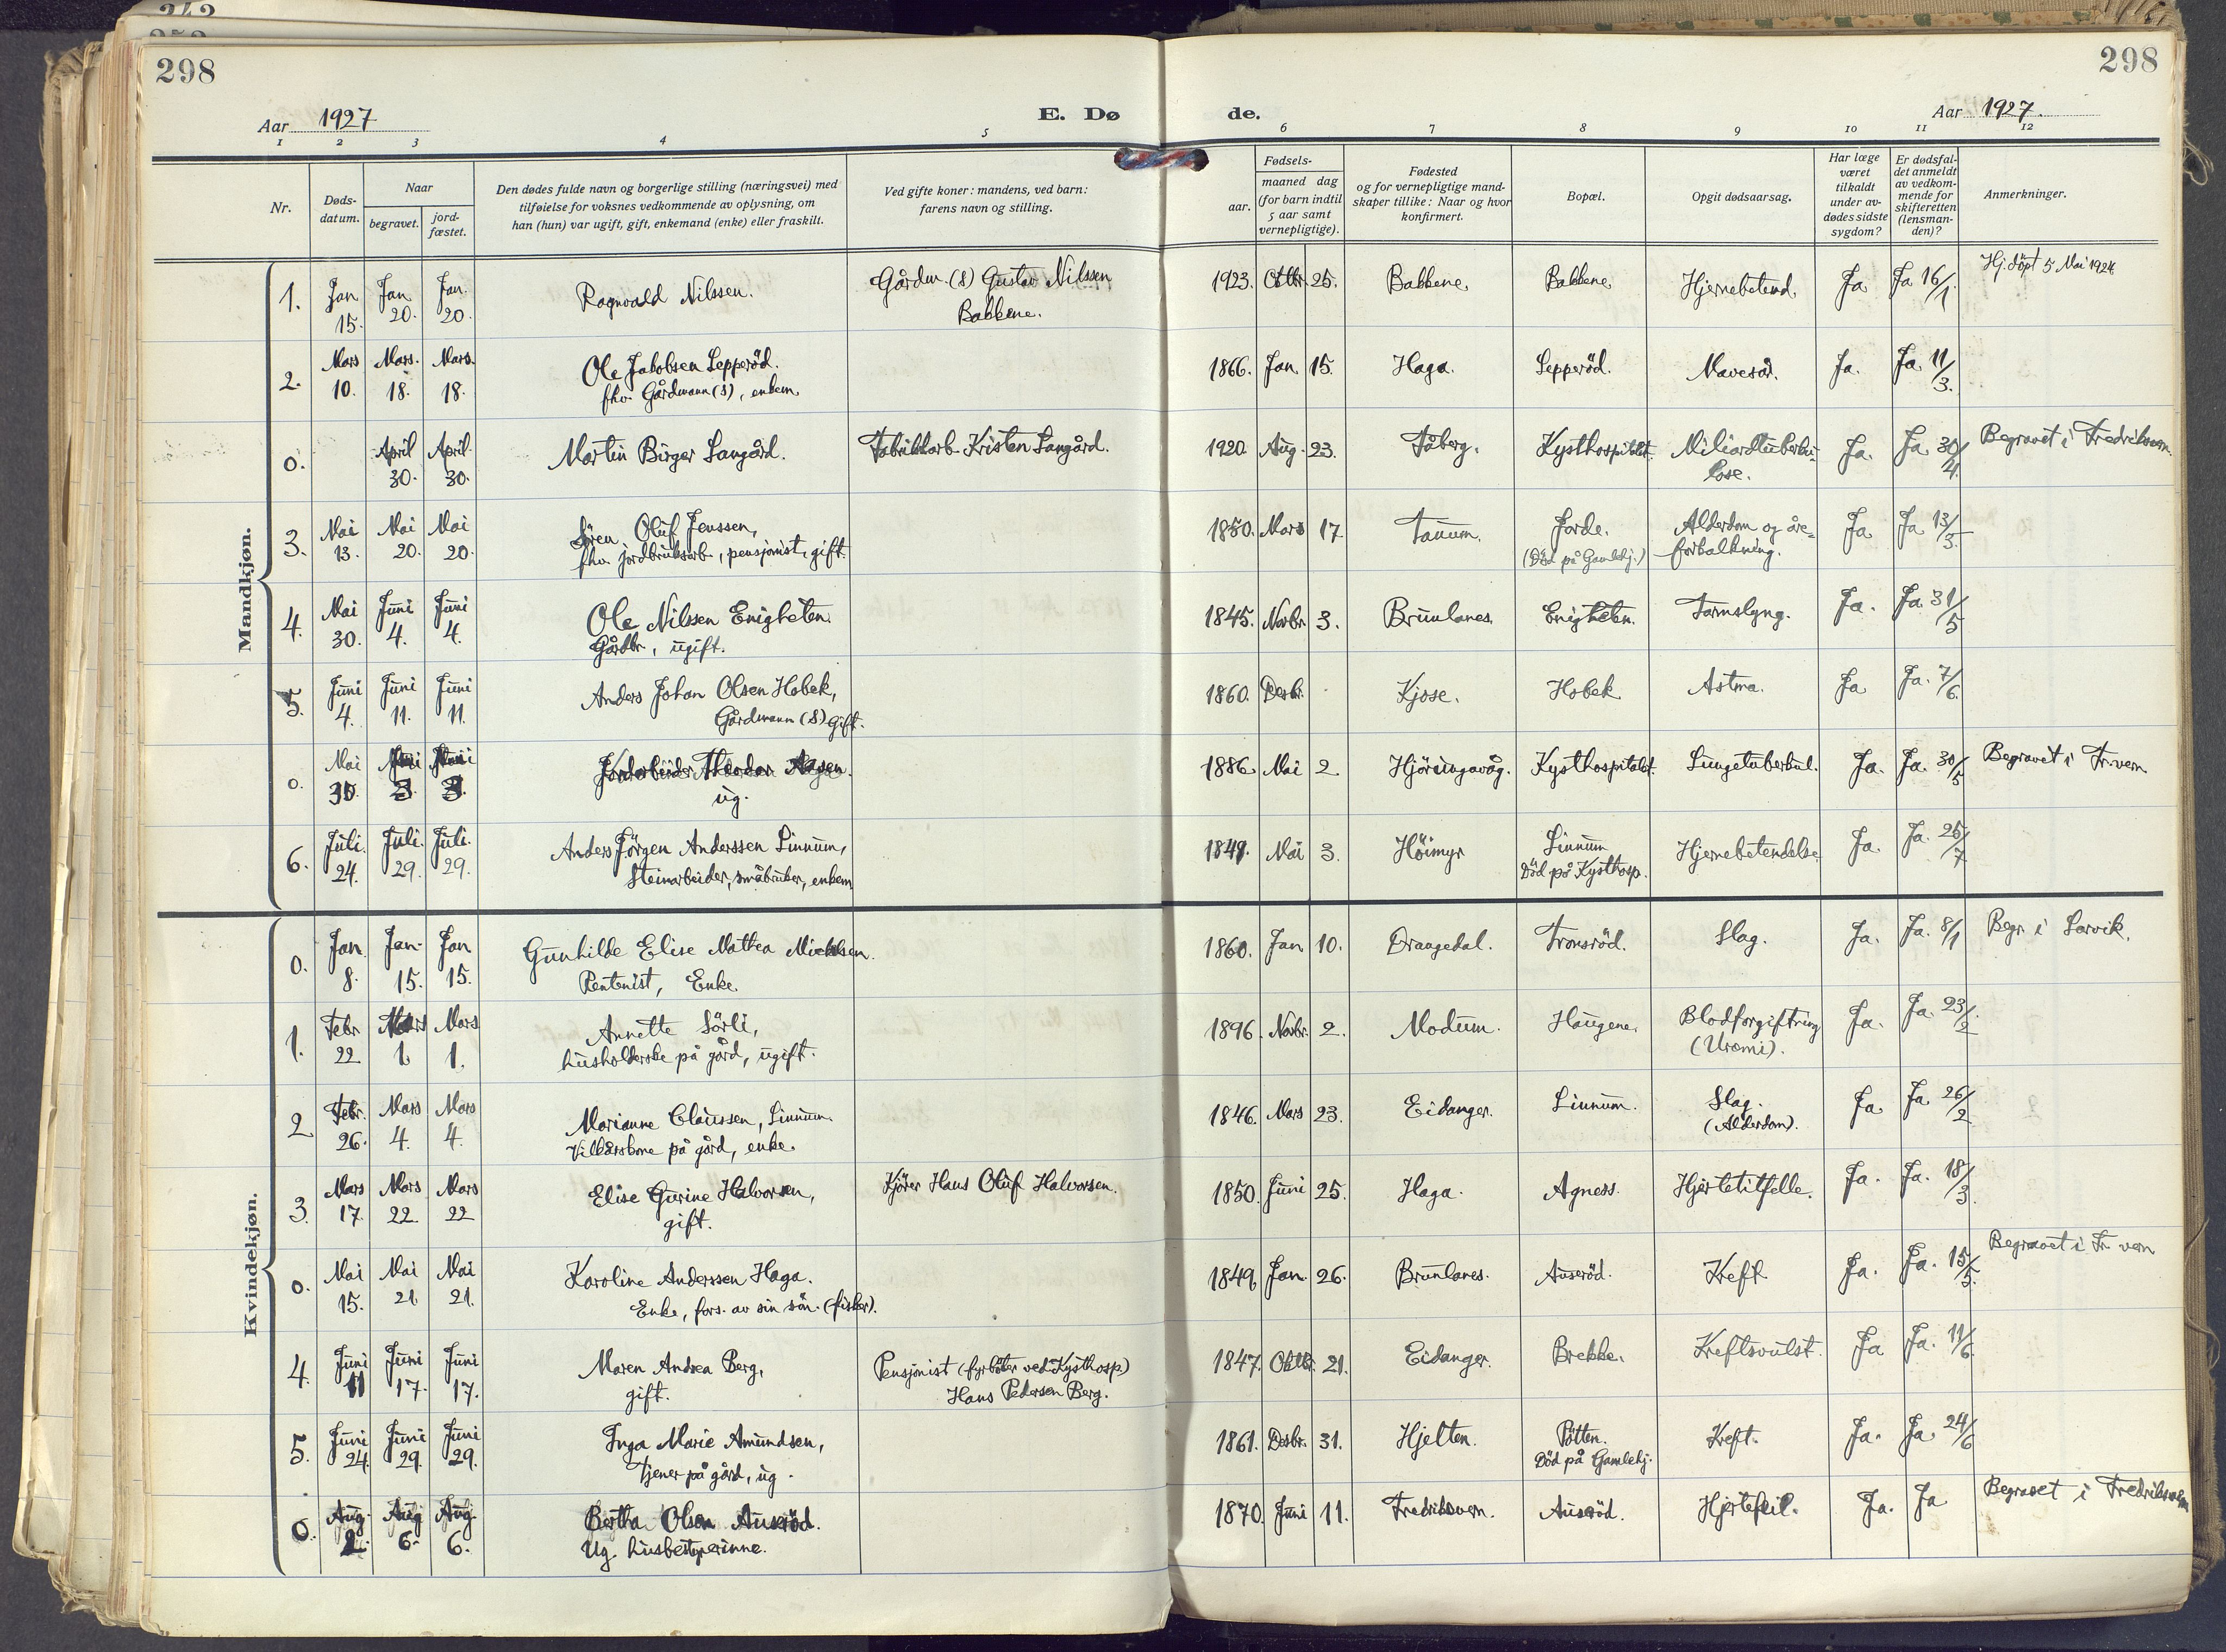 242
298
298
Aar 1927
E. Dø
de.
Aar 1927.
1 2 3 4 5 6 7 8 9 10 11 12
Nr.
Døds-
datum.
Naar
begravet.
jord-
fæstet.
Den dødes fulde navn og borgerlige stilling (næringsvei) med
tilføielse for voksnes vedkommende av oplysning, om
han (hun) var ugift, gift, enkemand (enke) eller fraskilt.
Ved gifte koner: mandens, ved barn:
farens navn og stilling.
Fødsels-
aar.
maaned dag
(for barn indtil
5 aar samt
vernepligtige).
Fødested
og for vernepligtige mand-
skaper tillike: Naar og hvor
konfirmert.
Bopæl.
Opgit dødsaarsag.
Har læge
været
tilkaldt
under av-
dødes sidste
sygdom?
Er dødsfal-
det anmeldt
av vedkom-
mende for
skifteretten
(lensman-
den)?
Anmerkninger.
Mandkjøn.
1. Jan 15. Jan 20. Jan. 20. Ragnvald Nilssen. Gårdm. (S) Gustav Nilssen
Bakkene. 1923. Oktbr. 25. Bakkene. Bakkene. Hjernebetend. Ja Ja 16/1 Hj. döpt 5 Mai 1924.
2. Mars 10. Mars. 18. Mars. 18. Ole Jakobsen Lepperöd.
fhv. Gårdmann (S), enkem. 1866. Jan. 15. Haga. Lepperöd. Mavesår. Ja. Ja 11/3.
0. April 30. April. 30. Martin Birger Langård. Fabrikkarb. Kristen Langård. 1920. Aug. 23. Fåberg. Kysthospitalet. Miliærtuberku-
lose. Ja. Ja. 30/4. Begravet i Fredriksvern.
3. Mai 13. Mai 20. Mai 20. Sören Oluf Jenssen,
fhv. jordbruksarb., pensjonist, gift. 1850. Mars 17. Tanum. Jorde.
(Död på Gamlehj.) Alderdom og åre-
forkalkning. Ja Ja 13/5.
4. Mai 30. Juni 4. Juni 4. Ole Nilssen Enigheten.
Gårdbr., ugift. 1845. Novbr. 3. Brunlanes. Enigheten. Tarmslyng. Ja. Ja. 31/5
5. Juni 4. Juni 11. Juni 11. Anders Johan Olsen Hobek,
Gårdmann (S) gift. 1860. Desbr. Kjose. Hobek Astma. Ja Ja. 7/6.
0. Mai 30. Juni 3. Juni 3. Jordarbeider Theodor Aasen.
ug. 1886. Mai 2 Hjöringavåg. Kysthospitalet. Lungetuberkul. Ja. Ja. 30/5 Begravet i Fr.vern
6. Juli. 24. Juli. 29. Juli. 29. Anders Jörgen Anderssen Linnum,
Steinarbeider, småbruker, enkem. 1849. Mai 3. Höimyr Linnum
Död på Kysthosp. Hjernebetendelse. Ja. Ja. 25/7
Kvindekjøn.
0. Jan. 8. Jan. 15. Jan 15. Gunhilde Elise Mathea Mickelsen.
Rentenist, Enke. 1860. Jan 10. Drangedal. Tronsröd. Slag. Ja. Ja. 8/1 Begr. i Larvik.
1. Febr 22 Mars 1. Mars 1. Annette Sörli,
husholderske på gård, ugift. 1896. Novbr. 2. Modum. Haugene. Blodforgiftning
(Uræmi). Ja. Ja. 23/2
2 Febr. 26. Mars 4. Mars 4. Marianne Claussen, Linnum.
Vilkårskone på gård, enke. 1846. Mars 23. Eidanger. Linnum. Slag.
(Alderdom). Ja. Ja 26/2
3. Mars 17. Mars 22. Mars 22 Elise Gurine Halvorsen,
gift. Kjörer Hans Oluf Halvorsen. 1850. Juni 25. Haga. Agness. Hjertetilfelle. Ja. Ja. 18/3.
0. Mai 15. Mai 21. Mai 21. Karoline Anderssen Haga.
Enke, fors. av sin sön. (fisker). 1849. Jan. 26. Brunlanes. Auseröd. Kreft Ja. Ja. 15/5. Begravet i Fr vern
4. Juni 11 Juni 17. Juni 17. Maren Andrea Berg,
gift. Pensjonist (fyrböter ved Kysthosp.)
Hans Pedersen Berg. 1847. Oktbr. 21. Eidanger. Brekke. Kreftsvulst. Ja Ja. 11/6.
5. Juni 24. Juni 29. Juni 29. Inga Marie Amundsen,
Tjener på gård, ug. 1861. Desbr. 31. Hjelten. Pötten.
Död på Gamlehj. Kreft. Ja. Ja. 24/6
0. Aug. 2. Aug 6. Aug. 6. Bertha Olsen Auseröd.
Ug. husbestyrerinne. 1870. Juni 11. Fredriksvern. Auseröd. Hjertefeil. Ja. Ja Begravet i Fredriksvern